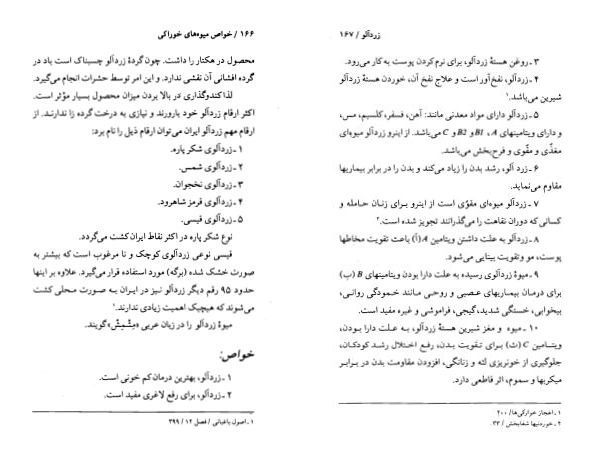 ۱۶۶ / خواص میوه‌های خوراکی
محصول در هکتار را داشت. چون گردهٔ زردآلو چسبناک است باد در
گرده افشانی آن نقشی ندارد. و این امر توسط حشرات انجام میگیرد.
لذا کندوگذاری در بالا بردن میزان محصول بسیار مؤثر است.
اکثر ارقام زردآلو خود بارورند و نیازی به درخت گرده زا ندارند. از
ارقام مهم زردآلو ایران می‌توان ارقام ذیل را نام برد:
۱ ـ زردآلوی شکر پاره.
۲ ـ زردآلوی شمس.
۳ ـ زردآلوی نخجوان.
۴ ـ زردآلوی قرمز شاهرود.
۵ ـ زردآلوی قیسی.
نوع شکر پاره در اکثر نقاط ایران کشت می‌گردد.
قیسی نوعی زردآلوی کوچک و نا مرغوب است که بیشتر به
صورت خشک شده (برگه) مورد استفاده قرار می‌گیرد. علاوه بر اینها
حدود ۹۵ رقم دیگر زردآلو نیز در ایران به صورت محلی کشت
می‌شوند که هیچیک اهمیت زیادی ندارند.۱
میوهٔ زردآلو را در زبان عربی «مِشْمِشْ» گویند.
خواص:
۱ ـ زردآلو، بهترین درمان کم خونی است.
۲ ـ زردآلو، برای رفع لاغری مفید است.
۱ ـ اصول باغبانی / فصل ۱۲ / ۳۹۹
زردآلو / ۱۶۷
۳ ـ روغن هستهٔ زردآلو، برای نرم کردن پوست به کار می‌رود.
۴ ـ زردآلو، نفخ‌آور است و علاج نفخ آن، خوردن هستهٔ زردآلو
شیرین می‌باشد.۱
۵ ـ زردآلو دارای مواد معدنی مانند: آهن، فسفر، کلسیم، مس،
و دارای ویتامینهای A، B1 و B2 و C می‌باشد. از اینرو زردآلو میوه‌ای
مغذّی و مقوی و فرح‌بخش می‌باشد.
۶ ـ زرد آلو، رشد بدن را زیاد می‌کند و بدن را در برابر بیماریها
مقاوم می‌نماید.
۷ ـ زردآلو میوه‌ای مقوّی است از اینرو برای زنان حامله و
کسانی که دوران نقاهت را می‌گذرانند تجویز شده است.۲
۸ ـ زردآلو به علت داشتن ویتامین A (آ) باعث تقویت مخاطها
پوست، مو و تقویت بینایی می‌شود.
۹ ـ میوهٔ زردآلوی رسیده به علت دارا بودن ویتامینهای B (ب)
برای درمان بیماریهای عصبی و روحی مانند خمودگی روانی،
بیخوابی، خستگی شدید، گیجی، فراموشی و غیره مفید است.
۱۰ ـ میوه و مغز شیرین هستهٔ زردآلو، به علت دارا بودن،
ویتامین C (ث) برای تقویت بدن، رفع اختلال رشد کودکان،
جلوگیری از خونریزی لثه و زنانگی، افزودن مقاومت بدن در برابر
میکربها و سموم، اثر قاطعی دارد.
۱ ـ اعجاز خوارکی‌ها / ۲۰۰
۲ ـ خوردنیها شفابخش / ۳۳